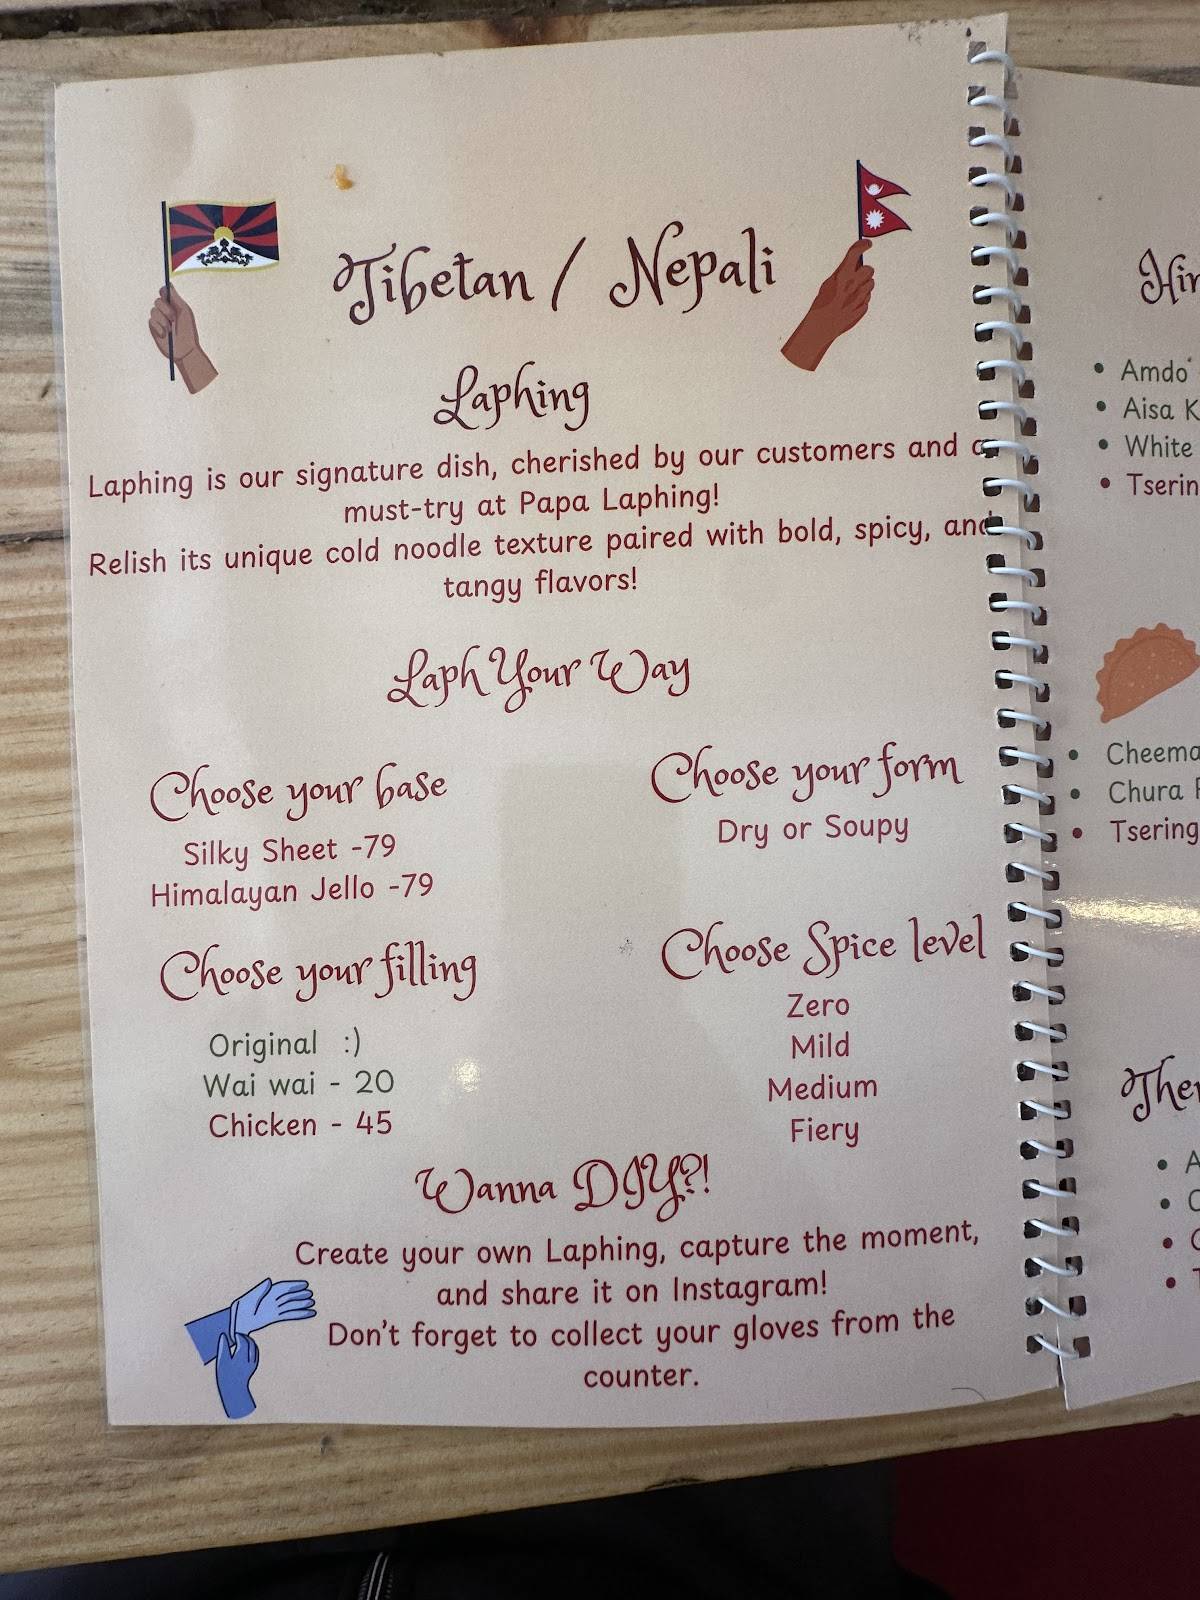 Tibetan / Nepali
Laphing
Laphing is our signature dish, cherished by our customers and a
must-try at Papa Laphing!
Relish its unique cold noodle texture paired with bold, spicy, and
tangy flavors!
Laph Your Way
Choose your base
Silky Sheet -79
Himalayan Jello -79
Choose your form
Dry or Soupy
Choose your filling
Original :)
Wai wai - 20
Chicken - 45
Choose Spice level
Zero
Mild
Medium
Fiery
Wanna DIY?!
Create your own Laphing, capture the moment,
and share it on Instagram!
Don't forget to collect your gloves from the
counter.
• Amdo
• Aisa
• White
•
•
• Chura
•